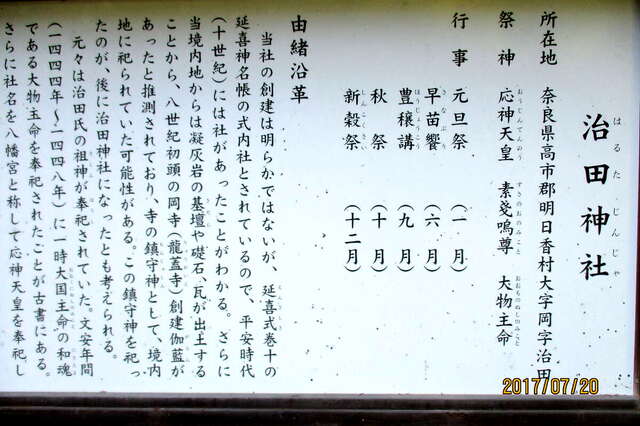 治田神社
はるたじんじゃ
所在地　奈良県高市郡明日香村大字岡字治田
祭神　応神天皇　素戔嗚尊　大物主命
おうじんてんのう　すさのおのみこと　おおものぬしのみこと
行事　元旦祭　（一月）
早苗饗　（六月）
さなぶり
豊穣講　（九月）
ほうじょうこう
秋祭　（十月）
新穀祭　（十二月）
しんこくさい
由緒沿革
当社の創建は明らかではないが、延喜式巻十の
延喜神名帳の式内社とされているので、平安時代
（十世紀）には社があったことがわかる。さらに
当境内地からは凝灰岩の基壇や礎石、瓦が出土する
ことから、八世紀初頭の岡寺（龍蓋寺）創建伽藍が
あったと推測されており、寺の鎮守神として、境内
地に祀られていた可能性がある。この鎮守神を祀っ
たのが、後に治田神社になったとも考えられる。
元々は治田氏の祖神が奉祀されていた。文安年間
（一四四四年～一四四八年）に一時大国主命の和魂
である大物主命を奉祀されたことが古書にある。
さらに社名を八幡宮と称して応神天皇を奉祀し
2017/07/20